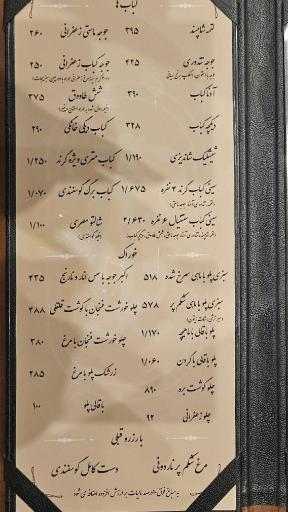 کباب ها
لقمه شاندیز ۳۹۵
جوجه ماستی زعفرانی ۲۶۰
جوجه تندوری ۴۲۵
جوجه کباب زعفرانی ۲۵۰
آدنا کباب ۳۹۰
شیش طاووق ۳۷۵
دیگچه کباب ۳۲۸
کباب دیگی خانگی ۲۹۰
شیشلیک شاندیزی ۱/۱۹۰
کباب متری ویژه کرند ۱/۲۵۰
سینی کباب کرند ۴ نفره ۱/۶۷۵
کباب برگ گوسفندی ۱/۰۷۰
سینی کباب سنتیال ۶ نفره ۲/۶۳۰
شالتو مصری ۱/۱۰۰
خوراک
سبزی پلو با ماهی سرخ شده ۵۱۸
اکبر جوجه با سس انار و نارنج ۴۳۵
سبزی پلو با ماهی شکم پر ۵۷۸
چلو خورشت فنجان با گوشت قلقلی ۴۸۸
پلو باقالی با ماهیچه ۱/۱۷۰
چلو خورشت فنجان با مرغ ۳۸۰
پلو باقالی با گردن ۱/۰۶۰
زرشک پلو با مرغ ۲۸۵
چلو گوشت بره ۸۹۰
باقالی پلو ۱۰۰
چلو زعفرانی ۹۲
با رزرو قبلی
مرغ شکم پر ناردونی
دست کامل گوسفندی
به مبالغ فوق ۱۰ درصد مالیات بر ارزش افزوده اضافه می شود